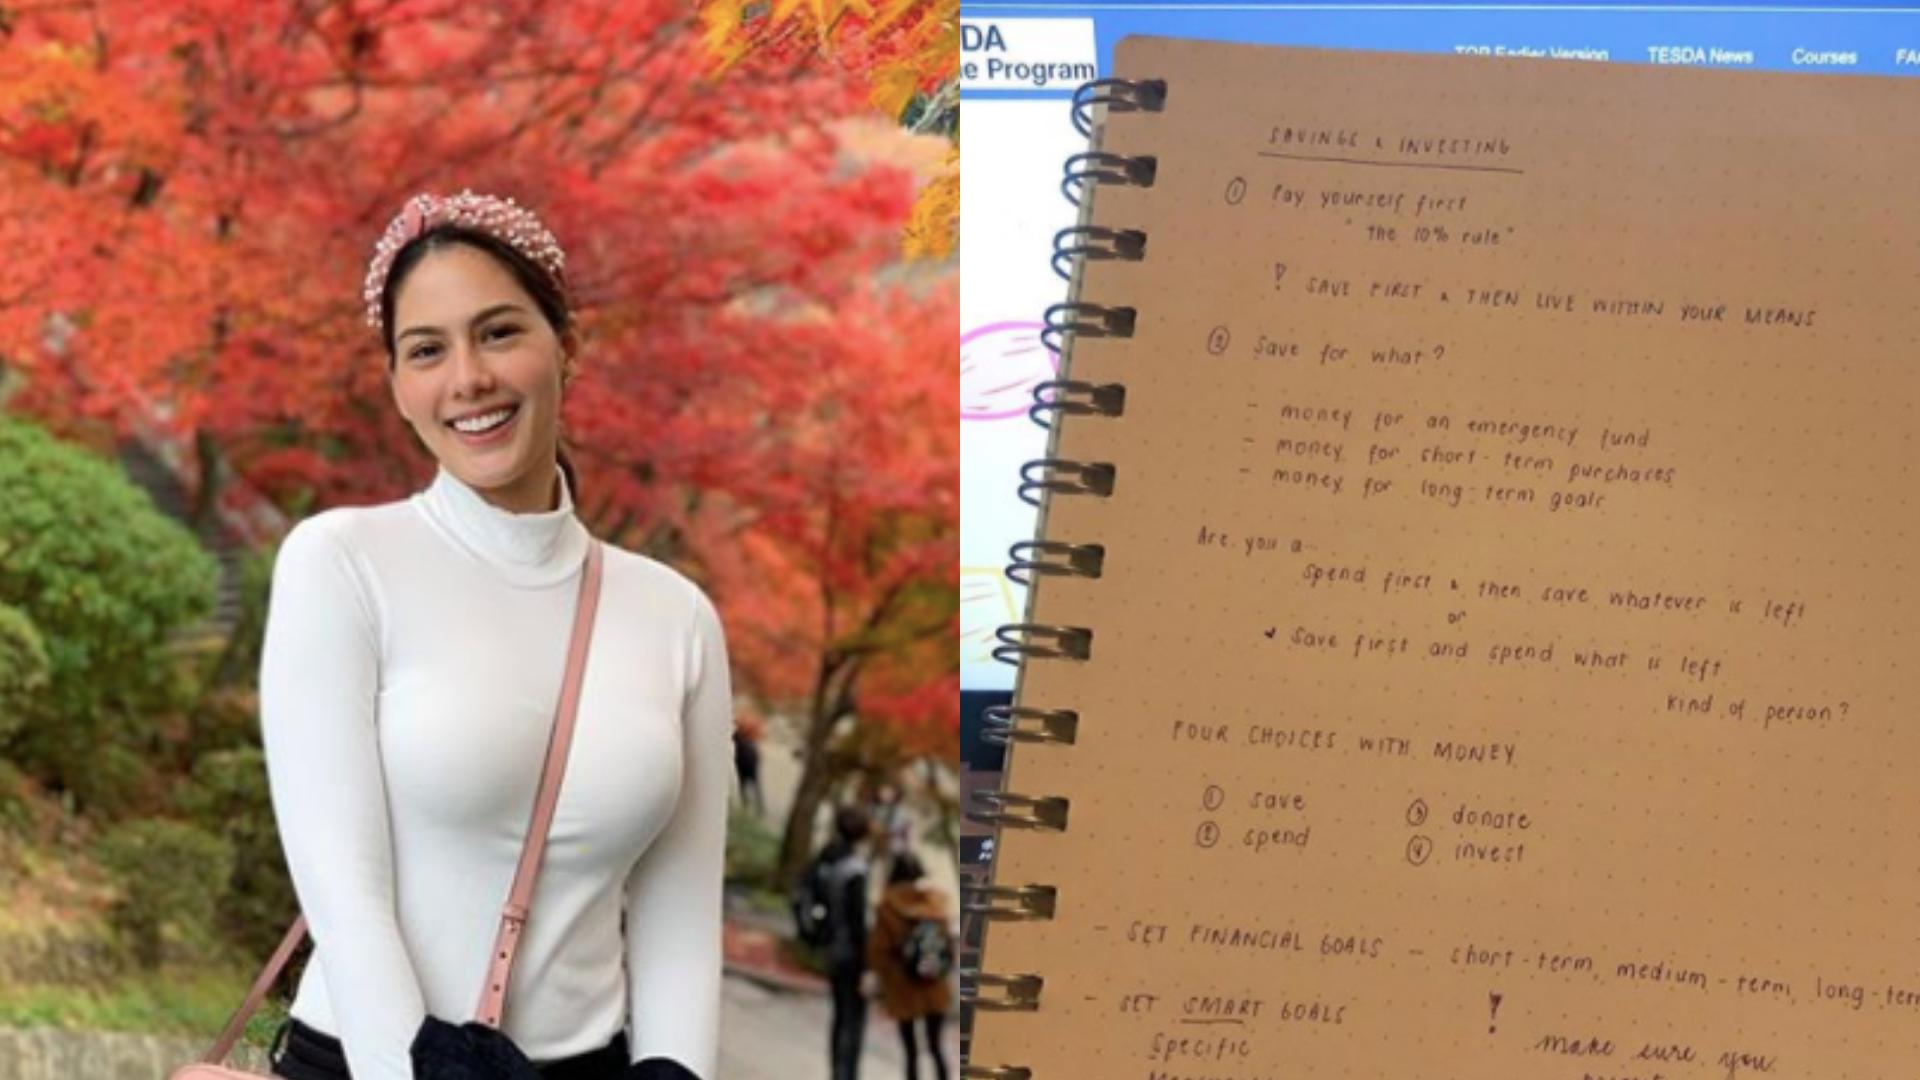 DA
e Program
TOP Earlier Version TESDA News Courses FA
SAVINGS & INVESTING
① Pay yourself first
"the 10% rule"
! SAVE FIRST & THEN LIVE WITHIN YOUR MEANS
② Save for what?
- money for an emergency fund
- money for short-term purchases
- money for long-term goals
Are you a...
spend first & then save whatever is left
or
save first and spend what is left
kind of person?
FOUR CHOICES WITH MONEY
① save ③ donate
② spend ④ invest
- SET FINANCIAL GOALS - short-term, medium-term, long-term
- SET SMART GOALS !
Specific make sure you